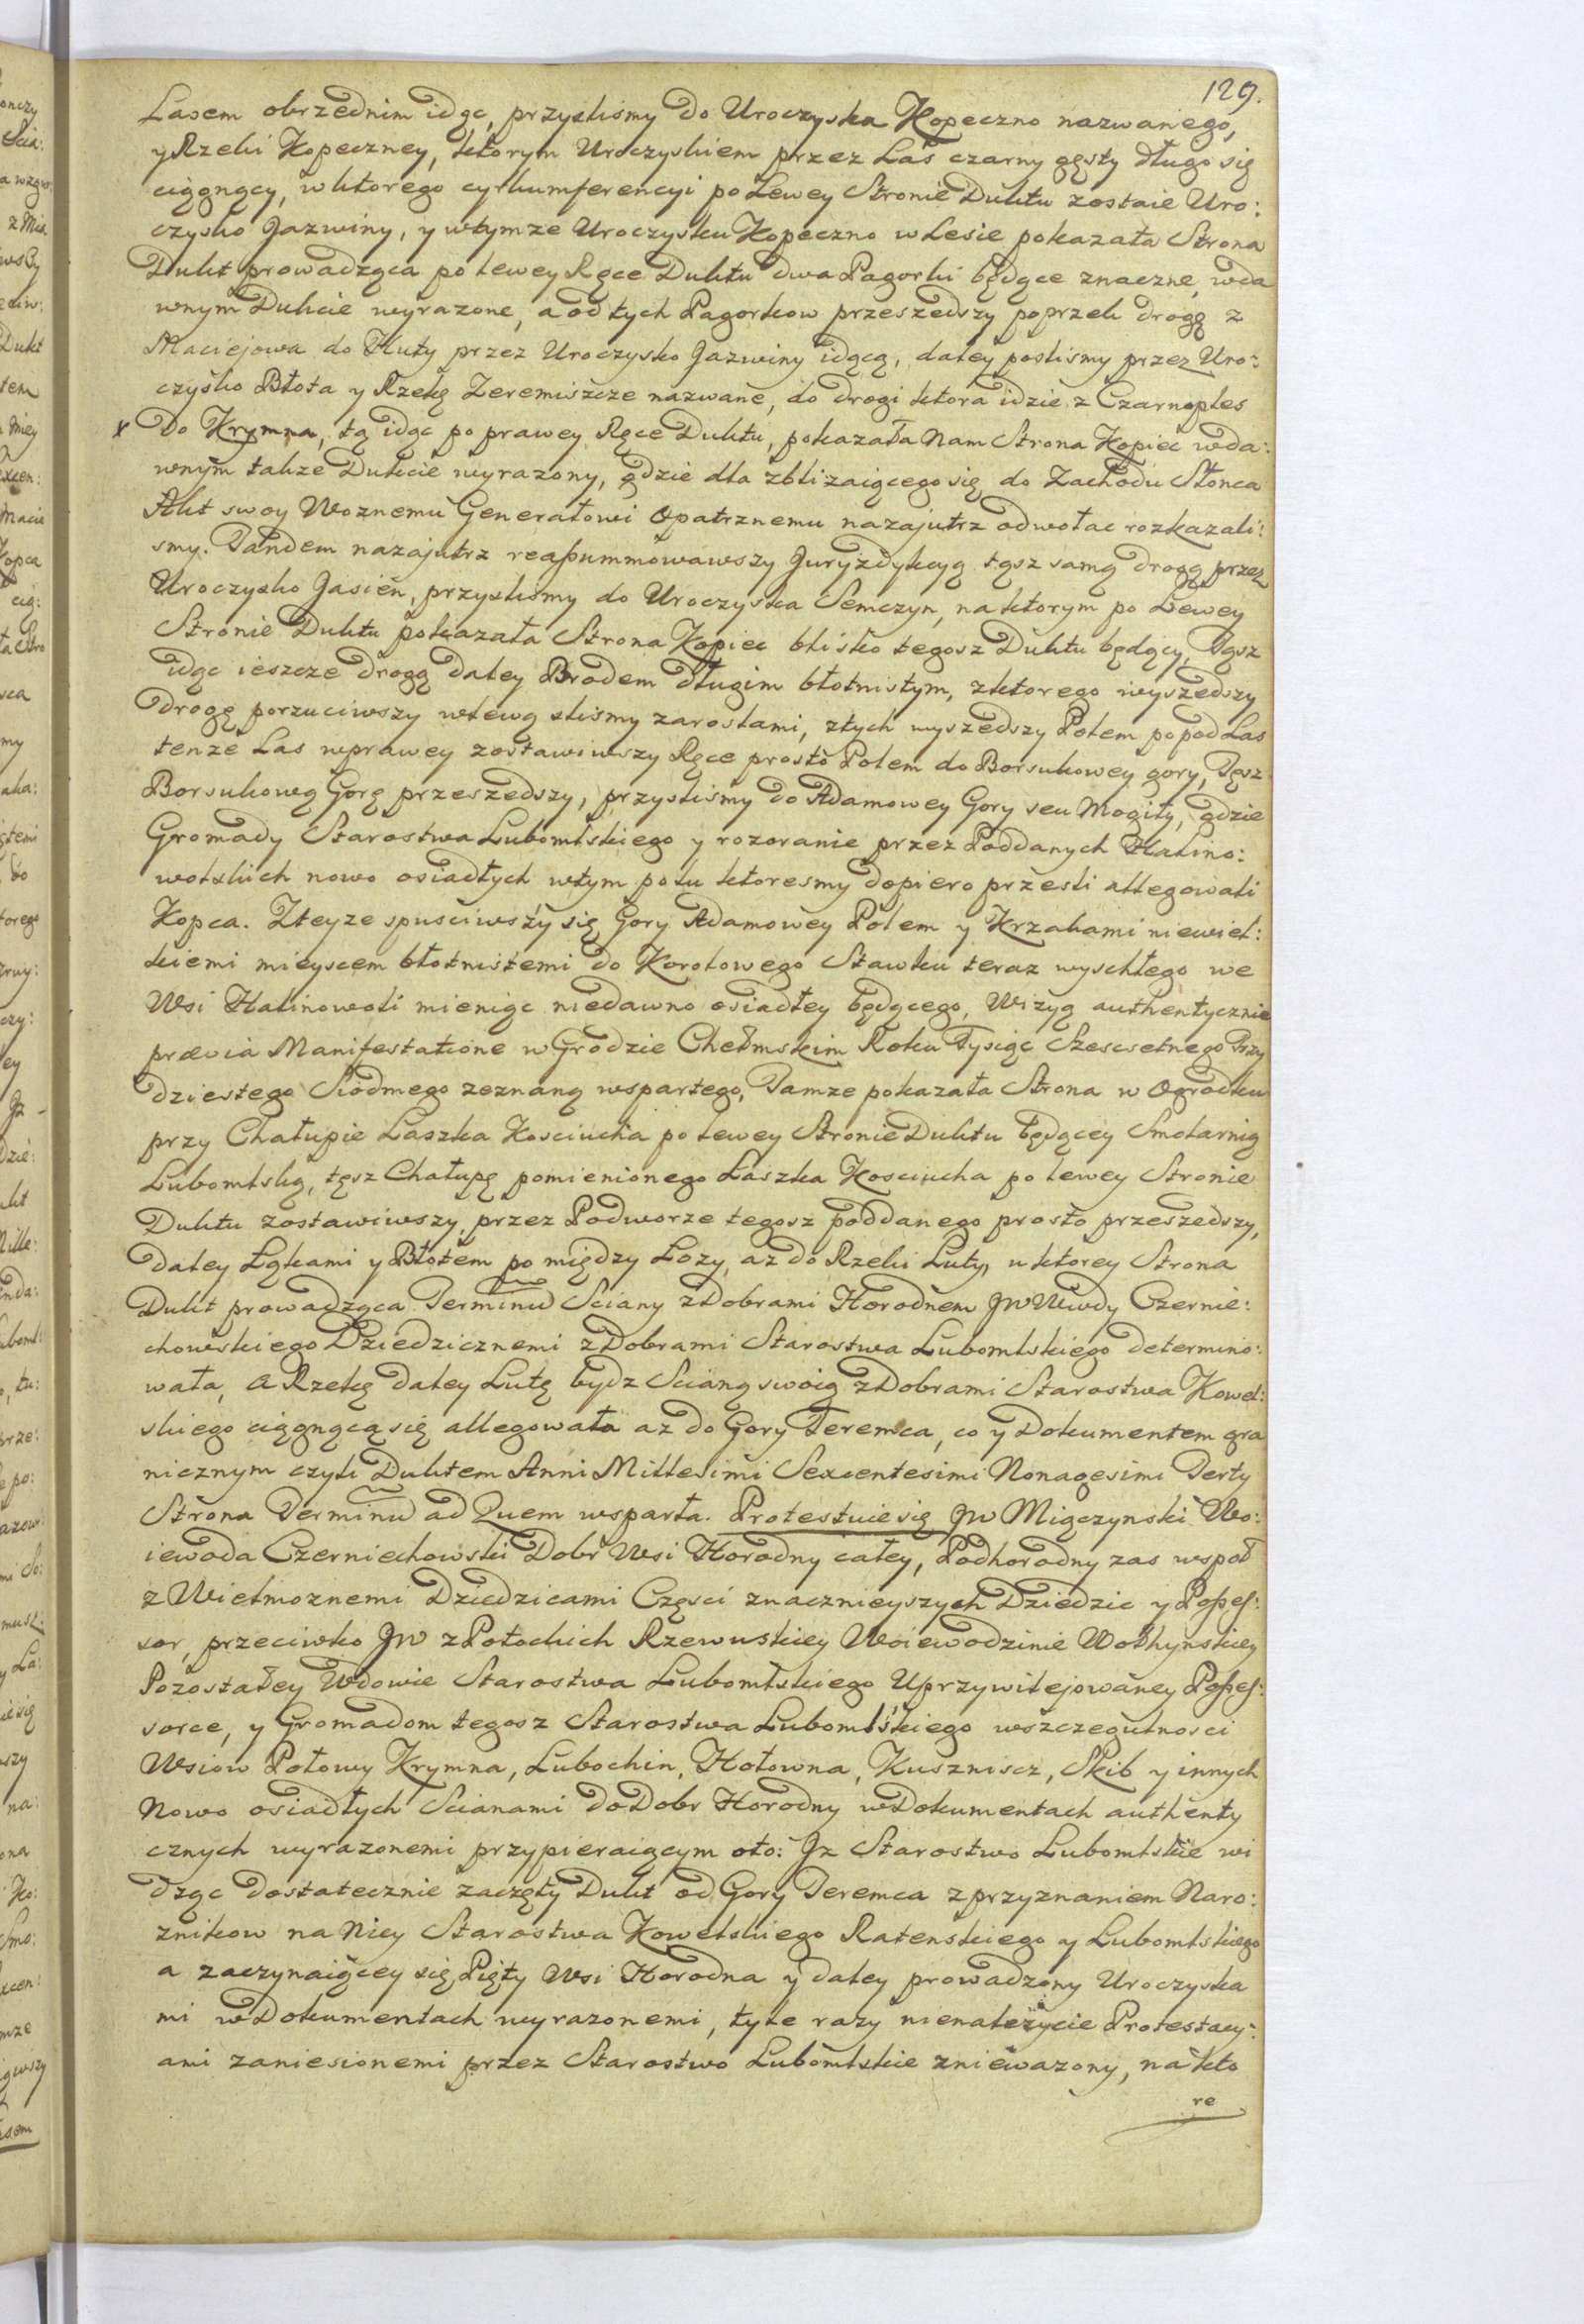 129.
Lasem obrzednim idąc, przyszlismy do Uroczyska Kopeczno nazwanego,
y Rzeki Kopeczney, ktorym Uroczyskiem przez Las czarny gęsty długo się
ciągnący, w ktorego cyrkumferencyi po Lewey Stronie Duktu zostaie Uro:
czysko Jazwiny, y wtymze Uroczysku Kopeczno w Lesie pokazała Strona
Dukt prowadząca po lewey Ręce Duktu dwa Pagorki będące znaczne, wda
wnym Dukcie wyrazone, a od tych Pagorkow przeszedszy poprzek drogę z
Maciejowa do Huty przez Uroczysko Jazwiny idącą, daley poslismy przez Uro:
czysko Błota y Rzekę Zeremiszcze nazwane, do drogi ktora idzie z Czarnoples
x do Krymna, tą idąc po prawey Ręce Duktu, pokazała Nam Strona Kopiec wda:
wnym takze Dukcie wyrazony, gdzie dla zblizaiącego się do Zachodu Słonca
Akt swoy Woznemu Generałowi Opatrznemu nazajutrz odwołac rozkazali:
smy. Tandem nazajutrz reassummowawszy Juryzdykcyą tąsz samą drogą przez
Uroczysko Jasień, przyszlismy do Uroczyska Semczyn, na ktorym po Lewey
Stronie Duktu pokazała Strona Kopiec blisko tegosz Duktu będący, Tąsz
idąc ieszcze drogą daley Brodem długim błotnistym, z ktorego wyszedszy
drogę porzuciwszy wlewą szlismy zaroslami, ztych wyszedszy Polem popod Las
tenze Las wprawey zostawiwszy Ręce prosto Polem do Borsukowey gory, Tęsz
Borsukową Gorę przeszedszy, przyslismy do Adamowey Gory seu Mogiły, gdzie
Gromady Starostwa Lubomlskiego y rozoranie przez Poddanych Halino:
wolskich nowo osiadłych wtym polu ktoresmy dopiero przesli allegowali
Kopca. Zteyze spusciwszy się Gory Adamowey Polem y Krzakami niewiel:
kiemi mieyscem błotnistemi do Korolowego Stawku teraz wyschłego we
Wsi Halinowoli mieniąc niedawno osiadłey będącego, Wizyą authentycznie
prævia Manifestatione w Grodzie Chełmskim Roku Tysiąc Szescsetnego Trzy
dziestego Siodmego zeznaną wspartego, Tamze pokazała Strona w Ogrodku
przy Chałupie Laszka Kosciucha po lewey Stronie Duktu będącey Smolarnią
Lubomlską, tęsz Chałupę pomienionego Łaszka Kosciucha po lewey Stronie
Duktu zostawiwszy, przez Podworze tegosz poddanego prosto przeszedszy,
daley Łąkami y Błotem po między Łozy, az do Rzeki Luty, u ktorey Strona
Dukt prowadząca Terminu Sciany z Dobrami Horodnem JW Wwdy Czernie:
chowskiego Dziedzicznemi z Dobrami Starostwa Lubomlskiego determino:
wała, a Rzekę daley Lutę bydz Scianą swoią z Dobrami Starostwa Kowel:
skiego ciągnącą się allegowała az do Gory Teremca, co y Dokumentem gra
nicznym czyli Duktem Anni Millesimi Sexcentesimi Nonagesimi Terty
Strona Terminu ad Quem wsparła. Protestuie się JW Miączynski Wo:
iewoda Czerniechowski Dobr Wsi Horodny całey, Podhorodny zas wspoł
z Wielmoznemi Dziedzicami Częsci znacznieyszych Dziedzic y Posses:
sor, przeciwko JW z Potockich Rzewuskiey Woiewodzinie Wołhynskiey
Pozostałey Wdowie Starostwa Lubomlskiego Uprzywilejowaney Posses:
sorce, y Gromadom tegosz Starostwa Lubomlskiego wszczegulnosci
Wsiow Połowy Krymna, Lubochin, Hołowna, Kuszniscz, Skib y innych
Nowo osiadłych Scianami do Dobr Horodny w Dokumentach authenty
cznych wyrazonemi przypieraiącym oto: Jz Starostwo Lubomlskie wi
dząc dostatecznie zaczęty Dukt od Gory Teremca z przyznaniem Naro:
znikow na Niey Starostwa Kowelskiego Ratenskiego y Lubomlskiego
a zaczynaiącey się Pięty Wsi Horodna y daley prowadzony Uroczyska
mi w Dokumentach wyrazonemi, tyle razy nienalezycie Protestacy:
ami zaniesionemi przez Starostwo Lubomlskie zniewazony, na kto
re